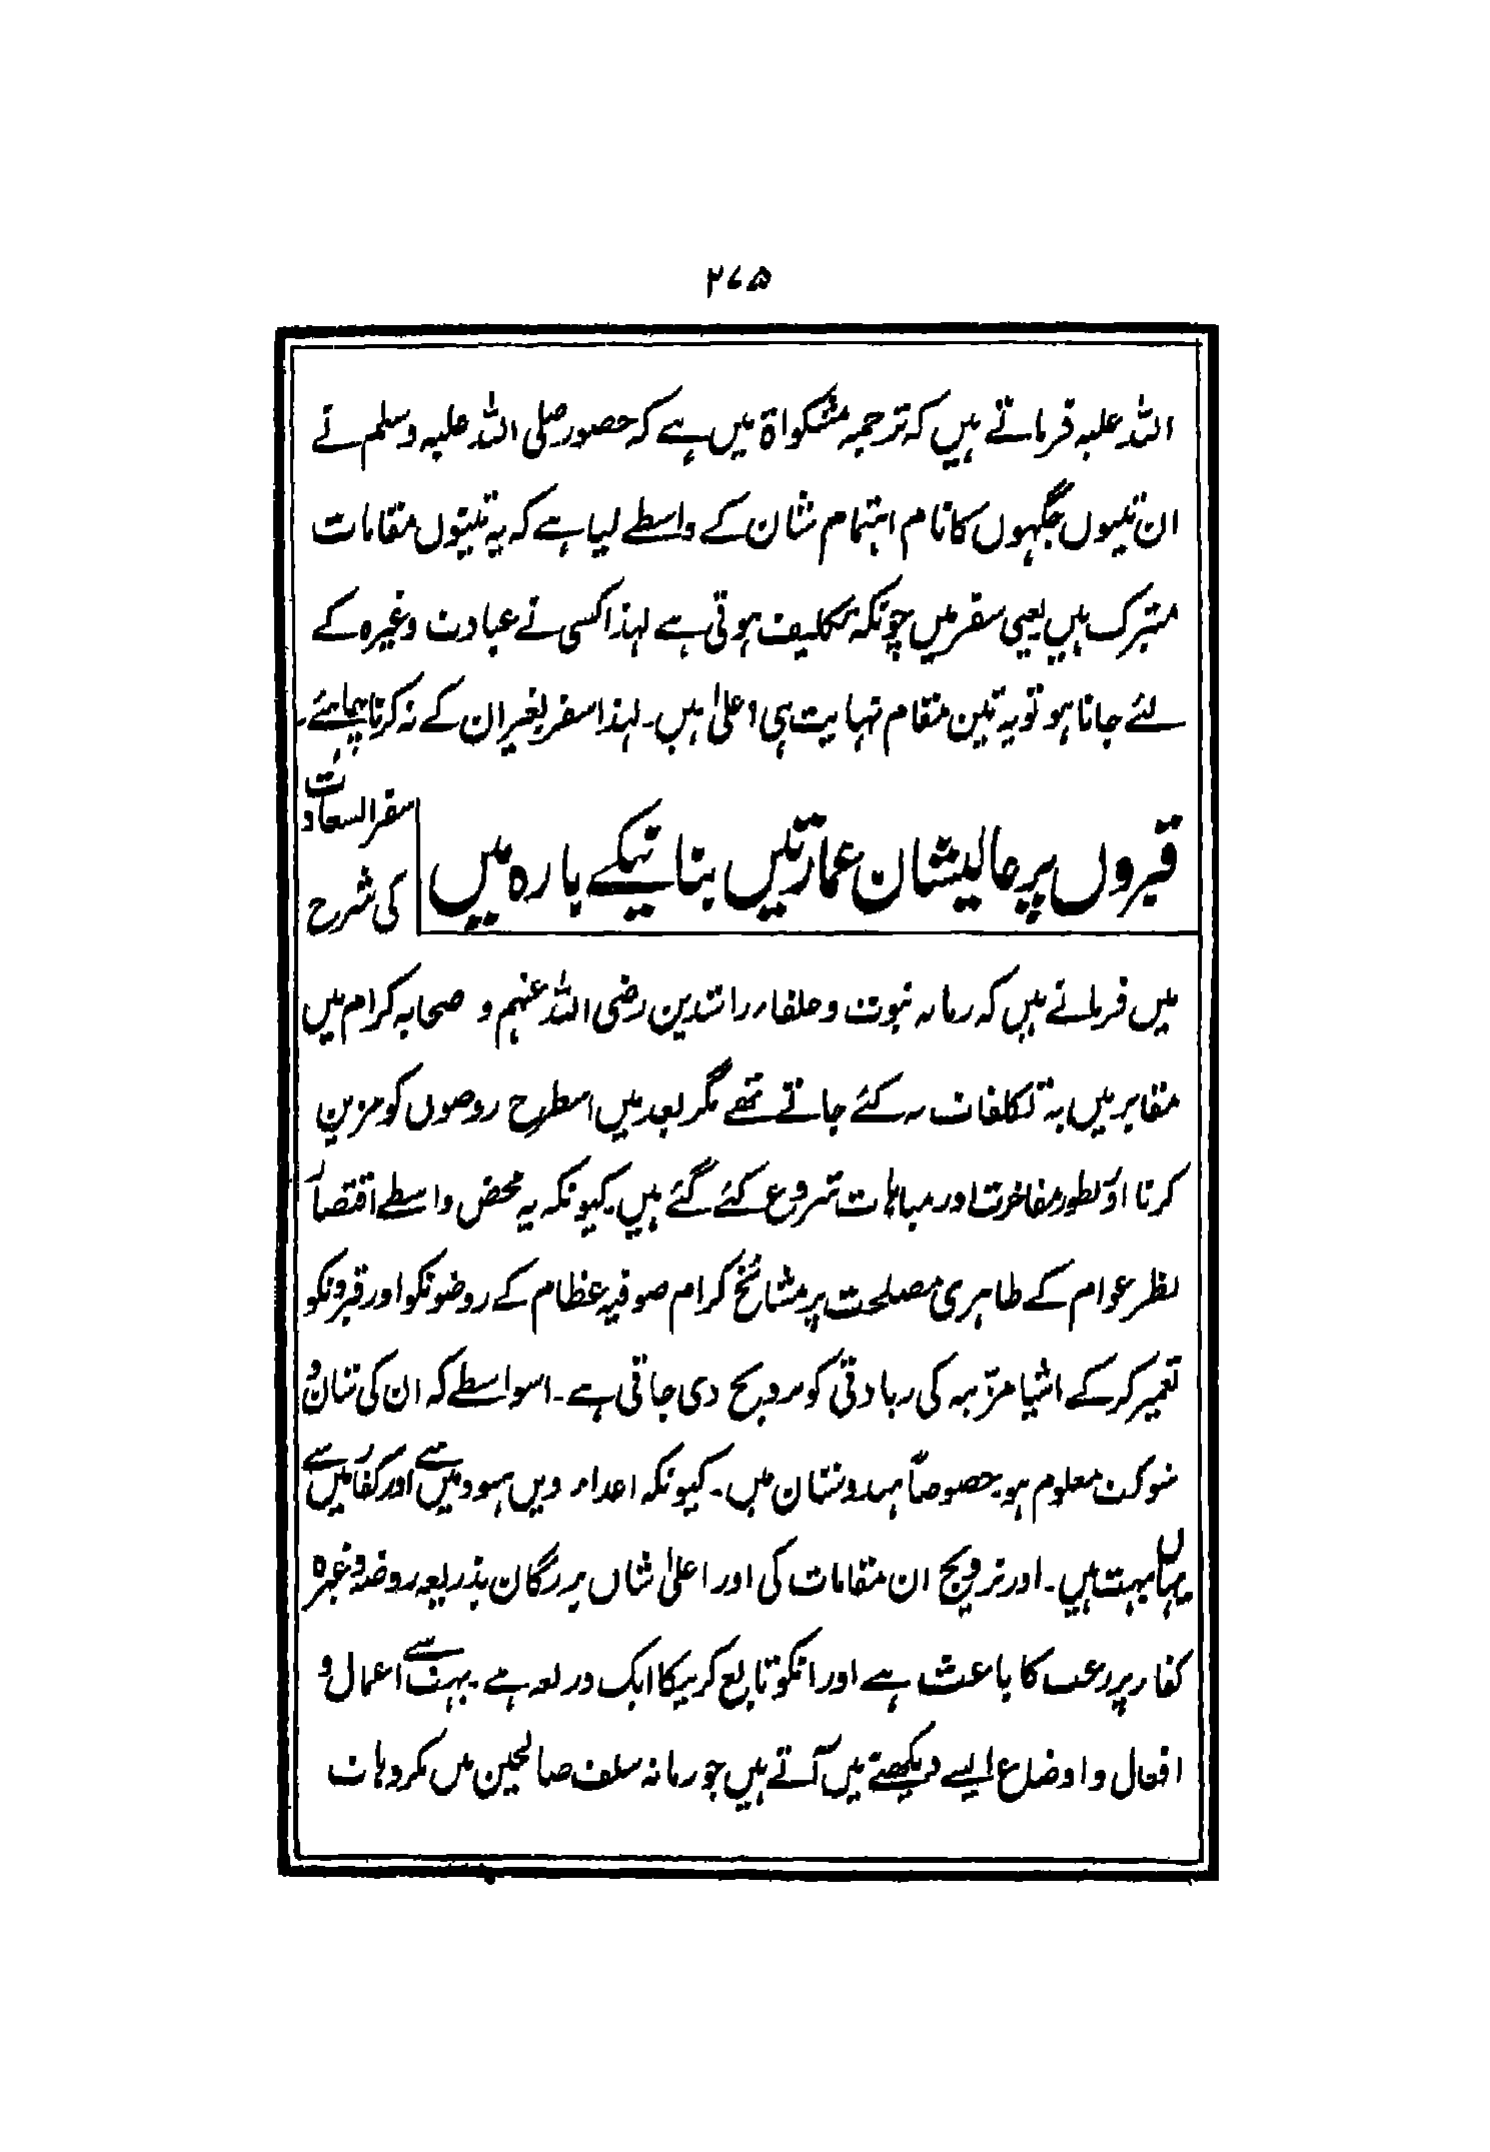 ۲۷۵
اللہ علیہ فرماتے ہیں کہ ترجمہ مشکواۃ میں ہے کہ حضور صلی اللہ علیہ وسلم نے
ان تینوں جگہوں کا نام اہتمام شان کے واسطے لیا ہے کہ یہ تینوں مقامات
متبرک ہیں یعنی سفر میں چونکہ تکلیف ہوتی ہے لہذا کسی نے عبادت وغیرہ کے
لئے جانا ہو تو یہ تین مقام نہایت ہی اعلیٰ ہیں۔ لہذا سفر بغیر ان کے نہ کرنا چاہئے۔
قبروں پر عالیشان عمارتیں بنانیکے بارہ میں
سفر السعادت
کی شرح
میں فرماتے ہیں کہ زمانہ نبوت و خلفاء راشدین رضی اللہ عنہم و صحابہ کرام میں
مقابر میں یہ تکلفات نہ کئے جاتے تھے مگر بعد میں اسطرح روضوں کو مزین
کرنا اور بطور مفاخرت اور مباہات شروع کئے گئے ہیں۔ کیونکہ یہ محض واسطے اقتصار
نظر عوام کے ظاہری مصلحت پر مشائخ کرام صوفیہ عظام کے روضونکو اور قبرونکو
تعمیر کر کے اشیا مزینہ کی زیادتی کو ترویج دی جاتی ہے۔ اسواسطے کہ ان کی شان و
شوکت معلوم ہو۔ خصوصاً ہندوستان میں۔ کیونکہ اعداء دیں ہنود میں سے اور کفار میں سے
یہاں بہت ہیں۔ اور ترویج ان مقامات کی اور اعلیٰ شاں بزرگان بذریعہ روضہ وغیرہ
کفار پر رعب کا باعث ہے اور انکو تابع کرنیکا ایک ذریعہ ہے۔ بہت سے اعمال و
افعال و اوضاع ایسے دیکھنے میں آتے ہیں جو زمانہ سلف صالحین میں مکروہات